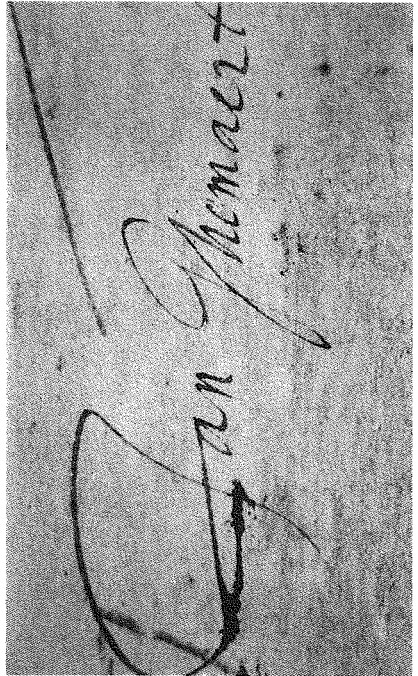 Jan Thomaert